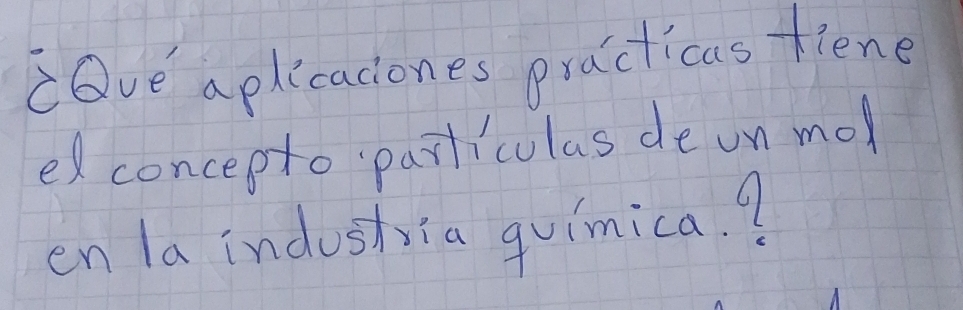 ¿Qué aplicaciones prácticas tiene
el concepto partículas de un mol
en la industria química.?